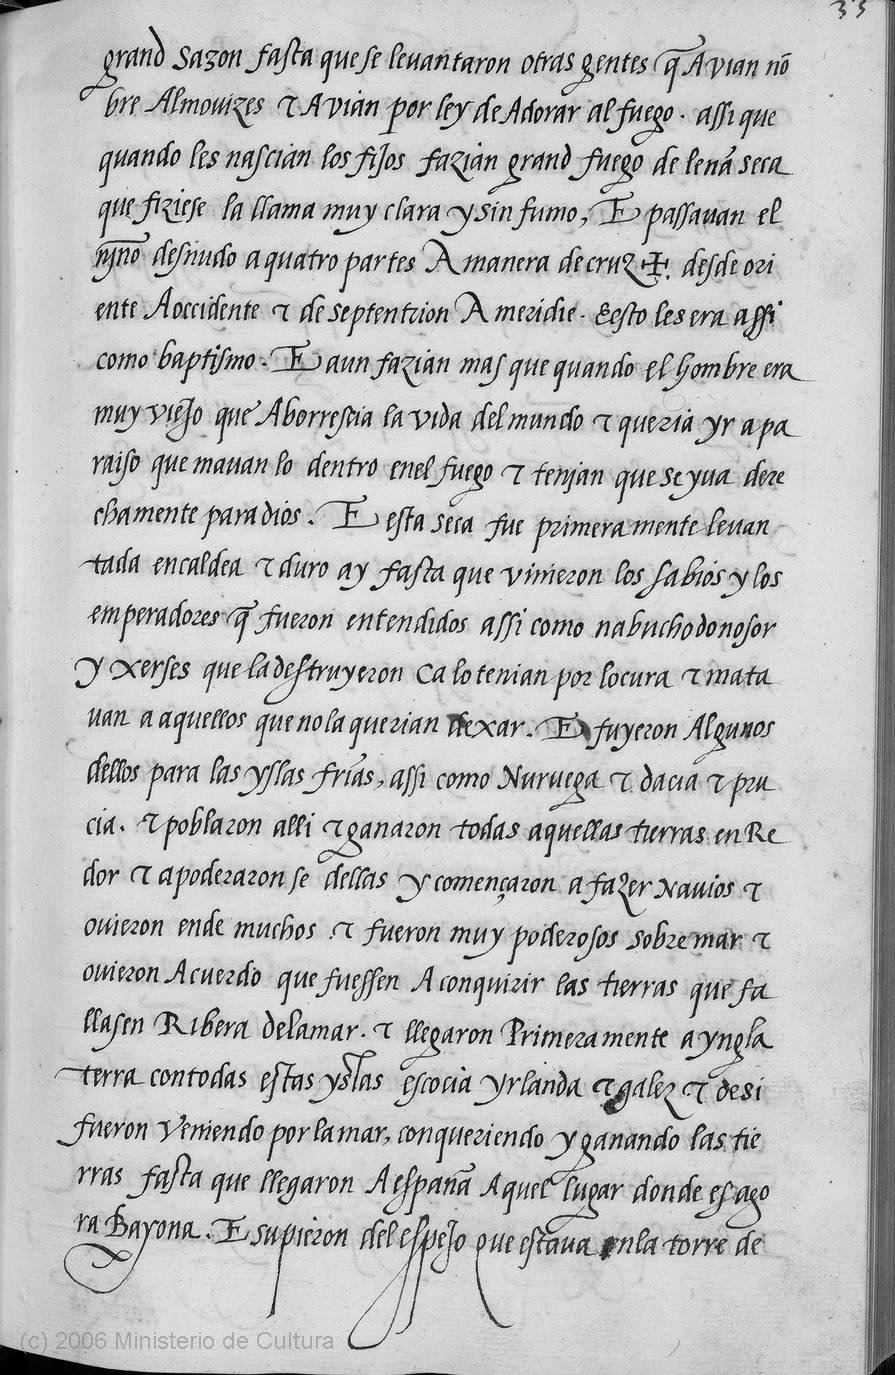 33
grand sazon fasta que se levantaron otras gentes q̃ Avian nõ
bre Almovizes ⁊ Avian por ley de Adorar al fuego . assi que
quando les nascian los fijos fazian grand fuego de lena seca
que fiziese la llama muy clara y sin fumo, E passavan el
njño desnudo a quatro partes A manera de cruz ✠. desde ori
ente A occidente ⁊ de septentrion A meridie . E esto les era assi
como baptismo . E aun fazian mas que quando el hombre era
muy viejo que Aborrescia la vida del mundo ⁊ queria yr a pa
raiso quemavan lo dentro en el fuego ⁊ tenjan que se yva dere
chamente para dios . E esta seca fue primeramente levan
tada en caldea ⁊ duro ay fasta que vinieron los sabios y los
emperadores q̃ fueron entendidos assi como nabuchodonosor
y xerses que la destruyeron Ca lo tenian por locura ⁊ mata
uan a aquellos que no la querian dexar . E fuyeron Algunos
dellos para las yslas frias, assi como Nuruega ⁊ dacia ⁊ pru
cia . ⁊ poblaron alli ⁊ ganaron todas aquellas tierras en Re
dor ⁊ apoderaron se dellas y començaron a fazer Navios ⁊
ovieron ende muchos . ⁊ fueron muy poderosos sobre mar ⁊
ovieron Acuerdo que fuessen A conquirir las tierras que fa
llasen Ribera de la mar . ⁊ llegaron Primeramente a yngla
terra con todas estas yslas escocia yrlanda ⁊ galez ⁊ desi
fueron Veniendo por la mar, conqueriendo y ganando las tie
rras fasta que llegaron A españa Aquel lugar donde es ago
ra Bayona . E supieron del espejo que estava enla torre de
(c) 2006 Ministerio de Cultura